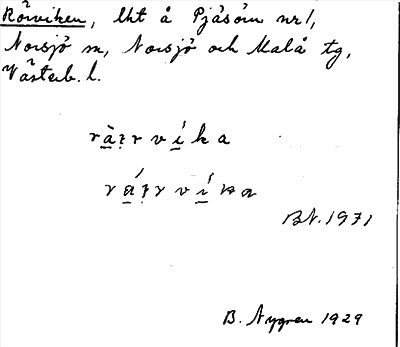 Rörviken, lht å Pjäsörn nr 1,
Norsjö sn, Norsjö och Malå tg,
Västerb. l.
r à z r v í k a
r á z r v í k a
BN. 1971
B. Nygren 1929